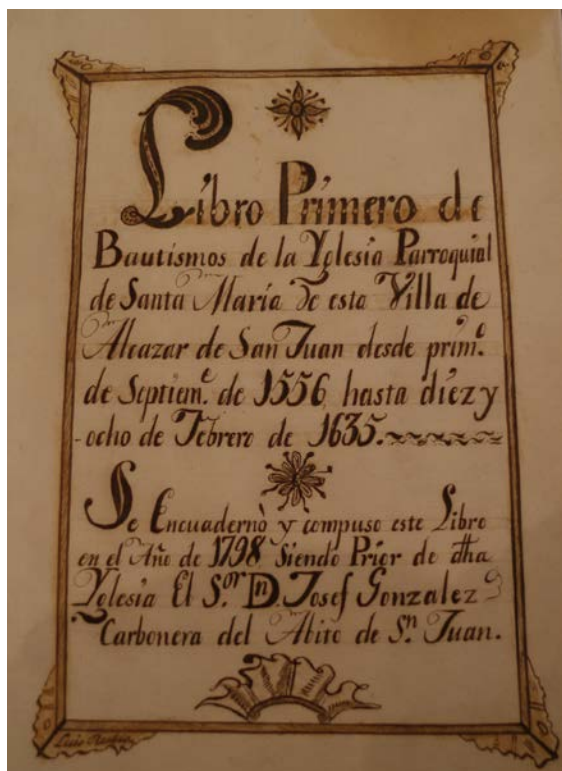 Libro Primero de
Bautismos de la Yglesia Parroquial
de Santa María de esta Villa de
Alcazar de San Juan desde prim.º
de Septiem.e de 1556 hasta diez y
-ocho de Febrero de 1635.
Se Encuadernò y compuso este Libro
en el Año de 1798 Siendo Prior de dha
Yglesia El S.or Dn. Josef Gonzalez
Carbonera del Abito de Sn. Juan.